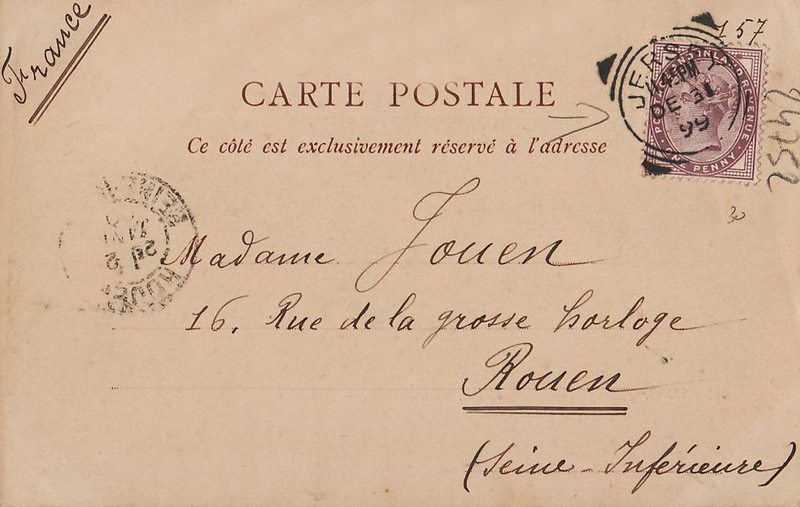 France
157
CARTE POSTALE
Ce côté est exclusivement réservé à l'adresse
JERSEY
DE 31
99
POSTAGE AND INLAND REVENUE
ONE PENNY
30
ROUEN
2
JANV
Madame Jouen
16, Rue de la grosse horloge
Rouen
(Seine-Inférieure)